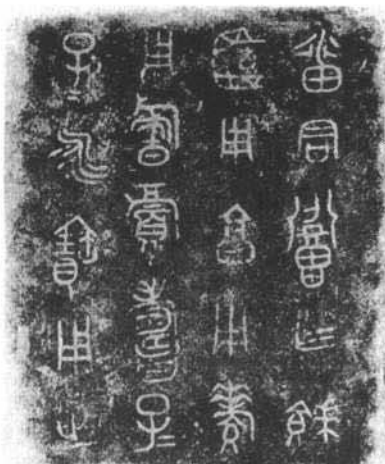 番君召乍餴
簠用亯用養
用祈眉壽子
孫永寶用之